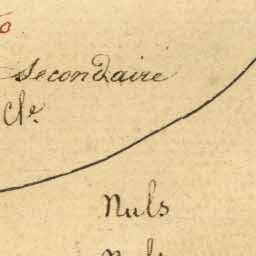 Secondaire
Cle.
Nuls